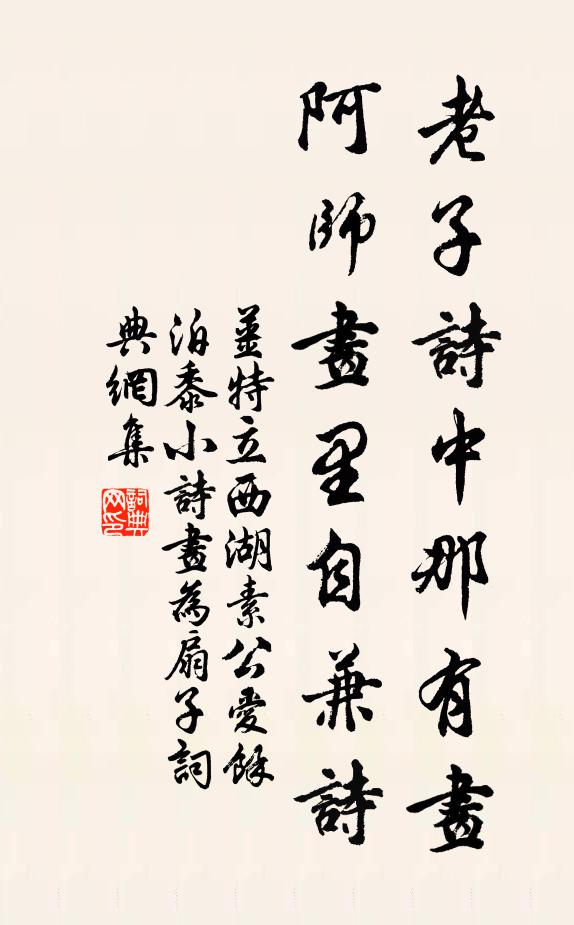 老子詩中那有畫
阿師畫里自兼詩
薑特立西湖素公愛餘
泊黍小詩畫為扇子詞
典網集
詞典網印